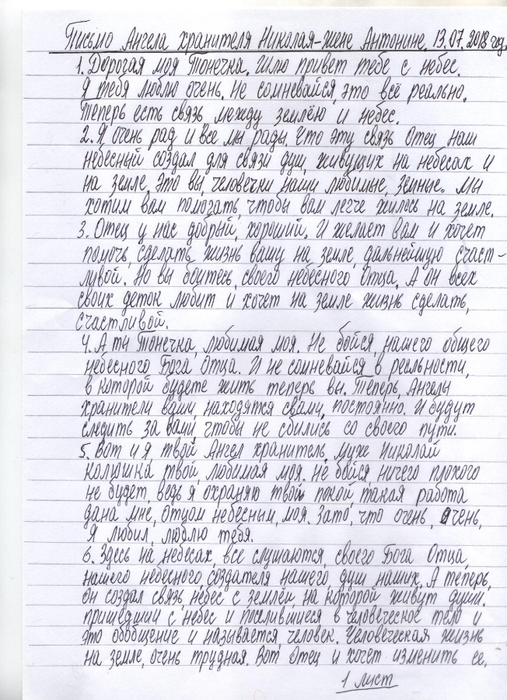 Письмо Ангела хранителя Николая-жене Антонине. 13.07.2018 год.
1. Дорогая моя Тонечка. Шлю привет тебе с небес.
Я тебя люблю очень. Не сомневайся, это всё реально.
Теперь есть связь между землёю и небес.
2. Я очень рад и все мы рады. Что эту связь Отец наш
небесный создал для связи душ, живущих на небесах и
на земле, это вы человечки наши любимые, земные. Мы
хотим вам помогать, чтобы вам легче жилось на земле.
3. Отец у нас добрый, хороший. И желает вам и хочет
помочь, сделать жизнь вашу на земле, дальнейшую счаст-
ливой. Но вы боитесь, своего небесного Отца, А он всех
своих деток любит и хочет на земле жизнь сделать,
счастливой.
4. А ты Тонечка, любимая моя. Не бойся, нашего общего
небесного Бога Отца. И не сомневайся в реальности,
в которой будете жить теперь вы. Теперь, Ангелы
хранители ваши, находятся с вами, постоянно. И будут
следить за вами, чтобы не сбились со своего пути.
5. Вот и я твой Ангел хранитель, муж Николай
Колюшка твой, любимая моя. Не бойся, ничего плохого
не будет, ведь я охраняю твой покой, такая работа
дана мне, Отцом небесным, моя. Зато, что очень, очень,
я любил, люблю тебя.
6. Здесь на небесах, все слушаются, своего Бога Отца,
нашего небесного, создателя нашего, душ наших. А теперь,
он создал связь, небес с землёй, на которой живут души.
пришедшие с небес и поселившиеся в человеческое тело и
это обобщение и называется, человек. Человеческая жизнь
на земле, очень трудная. Вот Отец и хочет изменить её,
1 лист